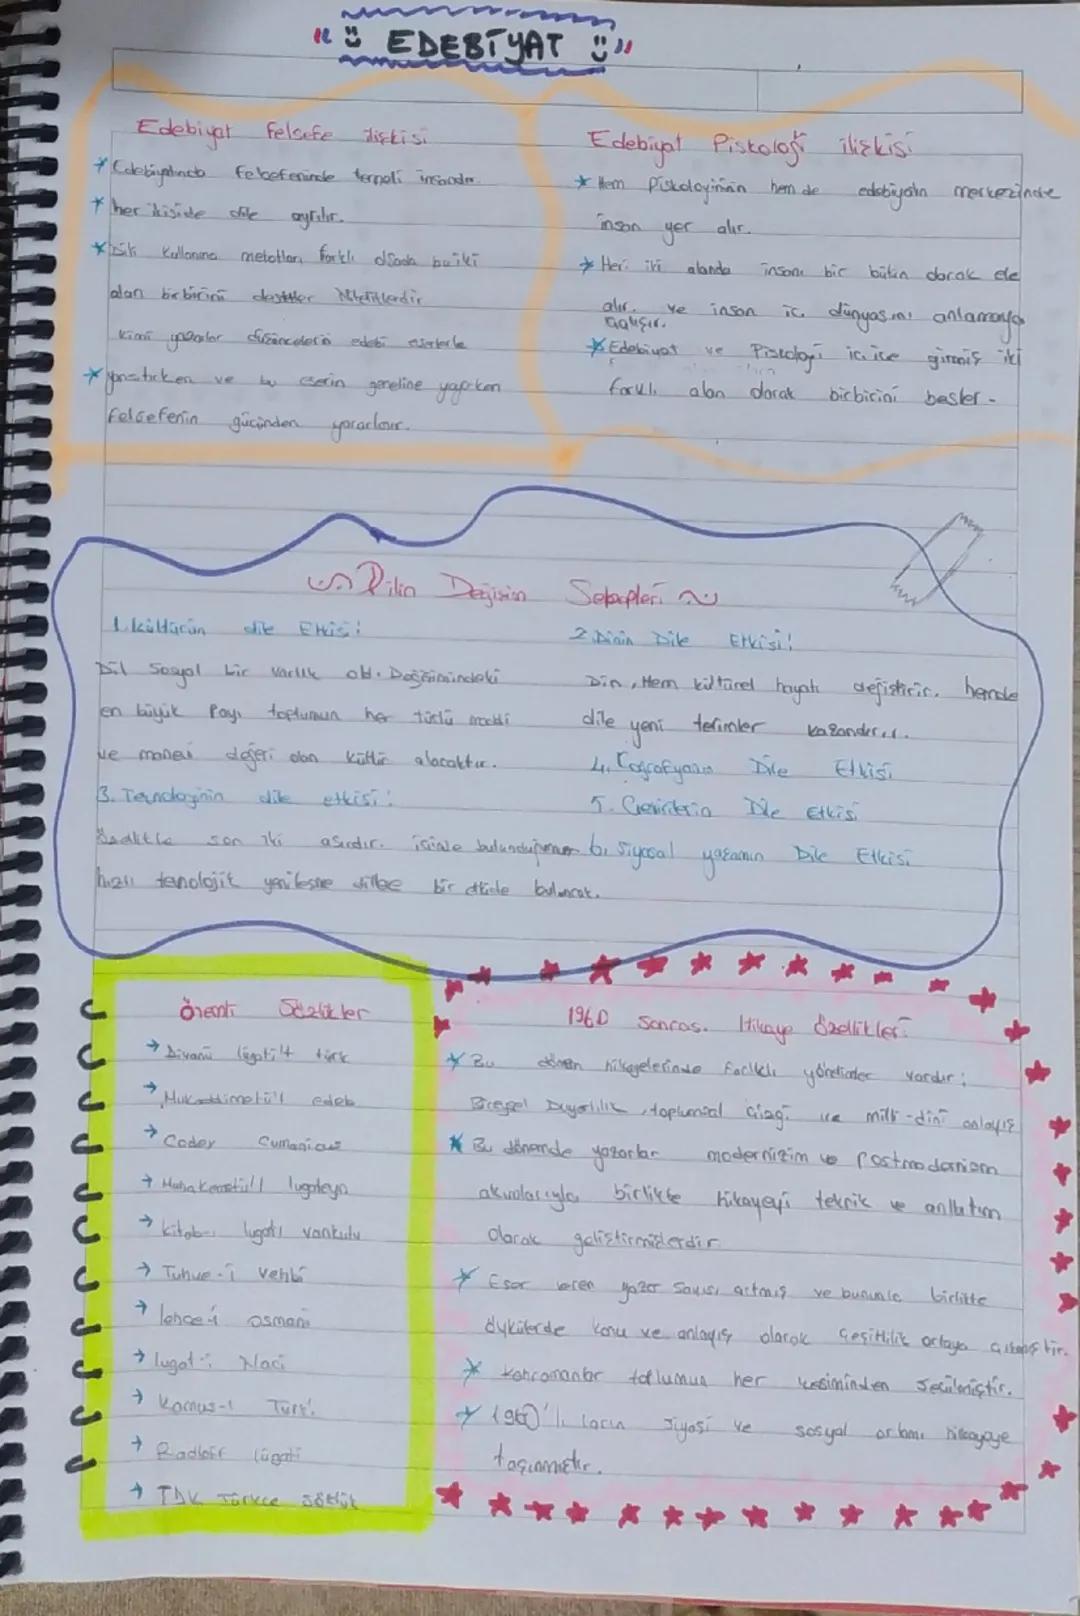 " EDEBİYAT "
Edebiyat Felsefe ilişkisi
* Edebiyatında Felsefeninde temeli insandır.
* her ikiside dile ayrılır.
* Dili kullanma metotları farklı olsada bu iki
alan birbirini destekler niteliktedir
kimi yazarlar düşüncelerin edebi eserlerle
* yansıtırken ve bu eserin geneline yayarken
felsefenin gücünden yararlanır.
Edebiyat Piskoloji ilişkisi
* Hem Piskolojinin hem de edebiyatın merkezinde
insan yer alır.
* Her iki alanda insanı bir bütün olarak ele
alır. ve insan iç dünyasını anlamaya
çalışır.
* Edebiyat ve Piskoloji iç içe girmiş iki
farklı alan olarak birbirini besler.
Dilin Değişim Sebepleri
1. kültürün dile Etkisi:
Dil Sosyal bir varlık old. Değişimindeki
en büyük Payı toplumun her türlü maddi
ve manevi değeri olan kültür alacaktır.
3. Teknolojinin dile etkisi:
son iki asırdır. içinde
hızlı teknolojik yenileşme dilbe bir etkide buluncak.
2. Dinin Dile Etkisi!
Din, Hem kültürel hayatı değiştirir. hemde
dile yeni terimler kazandırır.
4. Coğrafyanın Dile Etkisi
5. Çevirilerin Dile Etkisi
6. Siyasal yaşamın Dile Etkisi
Önemli Sözlükler
→ Divanü lügati't türk
→ Mukaddimetü'l edeb
→ Codex Cumanicus
→ Muhakemetü'l lugateyn
→ kitab-ı lugatı vankulu
→ Tuhve-i Vehbi
→ lehce-i osmani
→ lugat-i Naci
→ Kamus-ı Türki
→ Radloff lügati
→ TDK Türkçe sözlük
1960 Sonras. Hikaye Özellikleri
* Bu dönem hikayelerinde farklı yönelimler vardır:
Bireysel Duyarlılık, toplumsal çizgi ve milli-dini anlayış
* Bu dönemde yazarlar modernizim ve Postmodernizm
akımlarıyla birlikte hikayeyi teknik ve anlatım
olarak geliştirmişlerdir.
* Eser veren yazar Sayısı artmış ve bununla birlikte
öykülerde konu ve anlayış olarak çeşitlilik ortaya çıkmıştır.
* kahramanlar toplumun her kesiminden seçilmiştir.
* 1960'lı ların siyasi ve sosyal ortamı hikayeye
taşınmıştır.